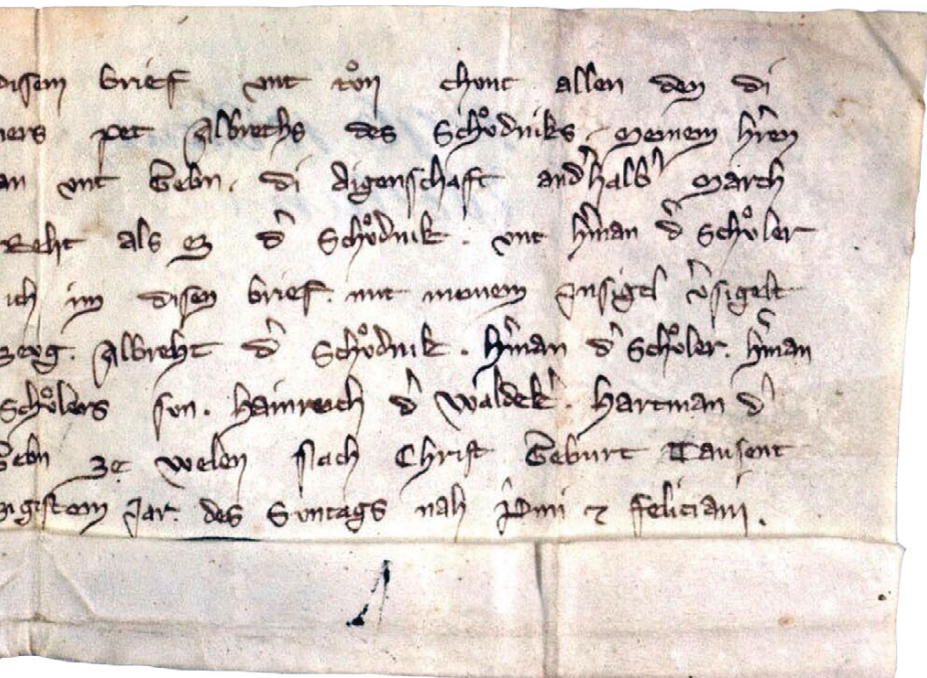 disem brief vnt tvͦn chunt allen den di
ners pet Albrehts des Schoͤdniks. meinem h'ren
an vnt Gebn. di Aigenschaft and'halb' march
Reht als Er d' Schoͤdnik. vnt H'man d' Schoͤler
ich im disen brief. mit meinem Insigel v'sigelt
zevg. Albreht d' Schoͤdnik. H'man d' Schoͤler. H'man
Schoͤlers sun. Hainreich d' Waldek'. Hartman d'
Gebn ze welen Nach Christ Geburt Tausent
zigistem Jar. des Suntags nah P'mi ⁊ Feliciani.